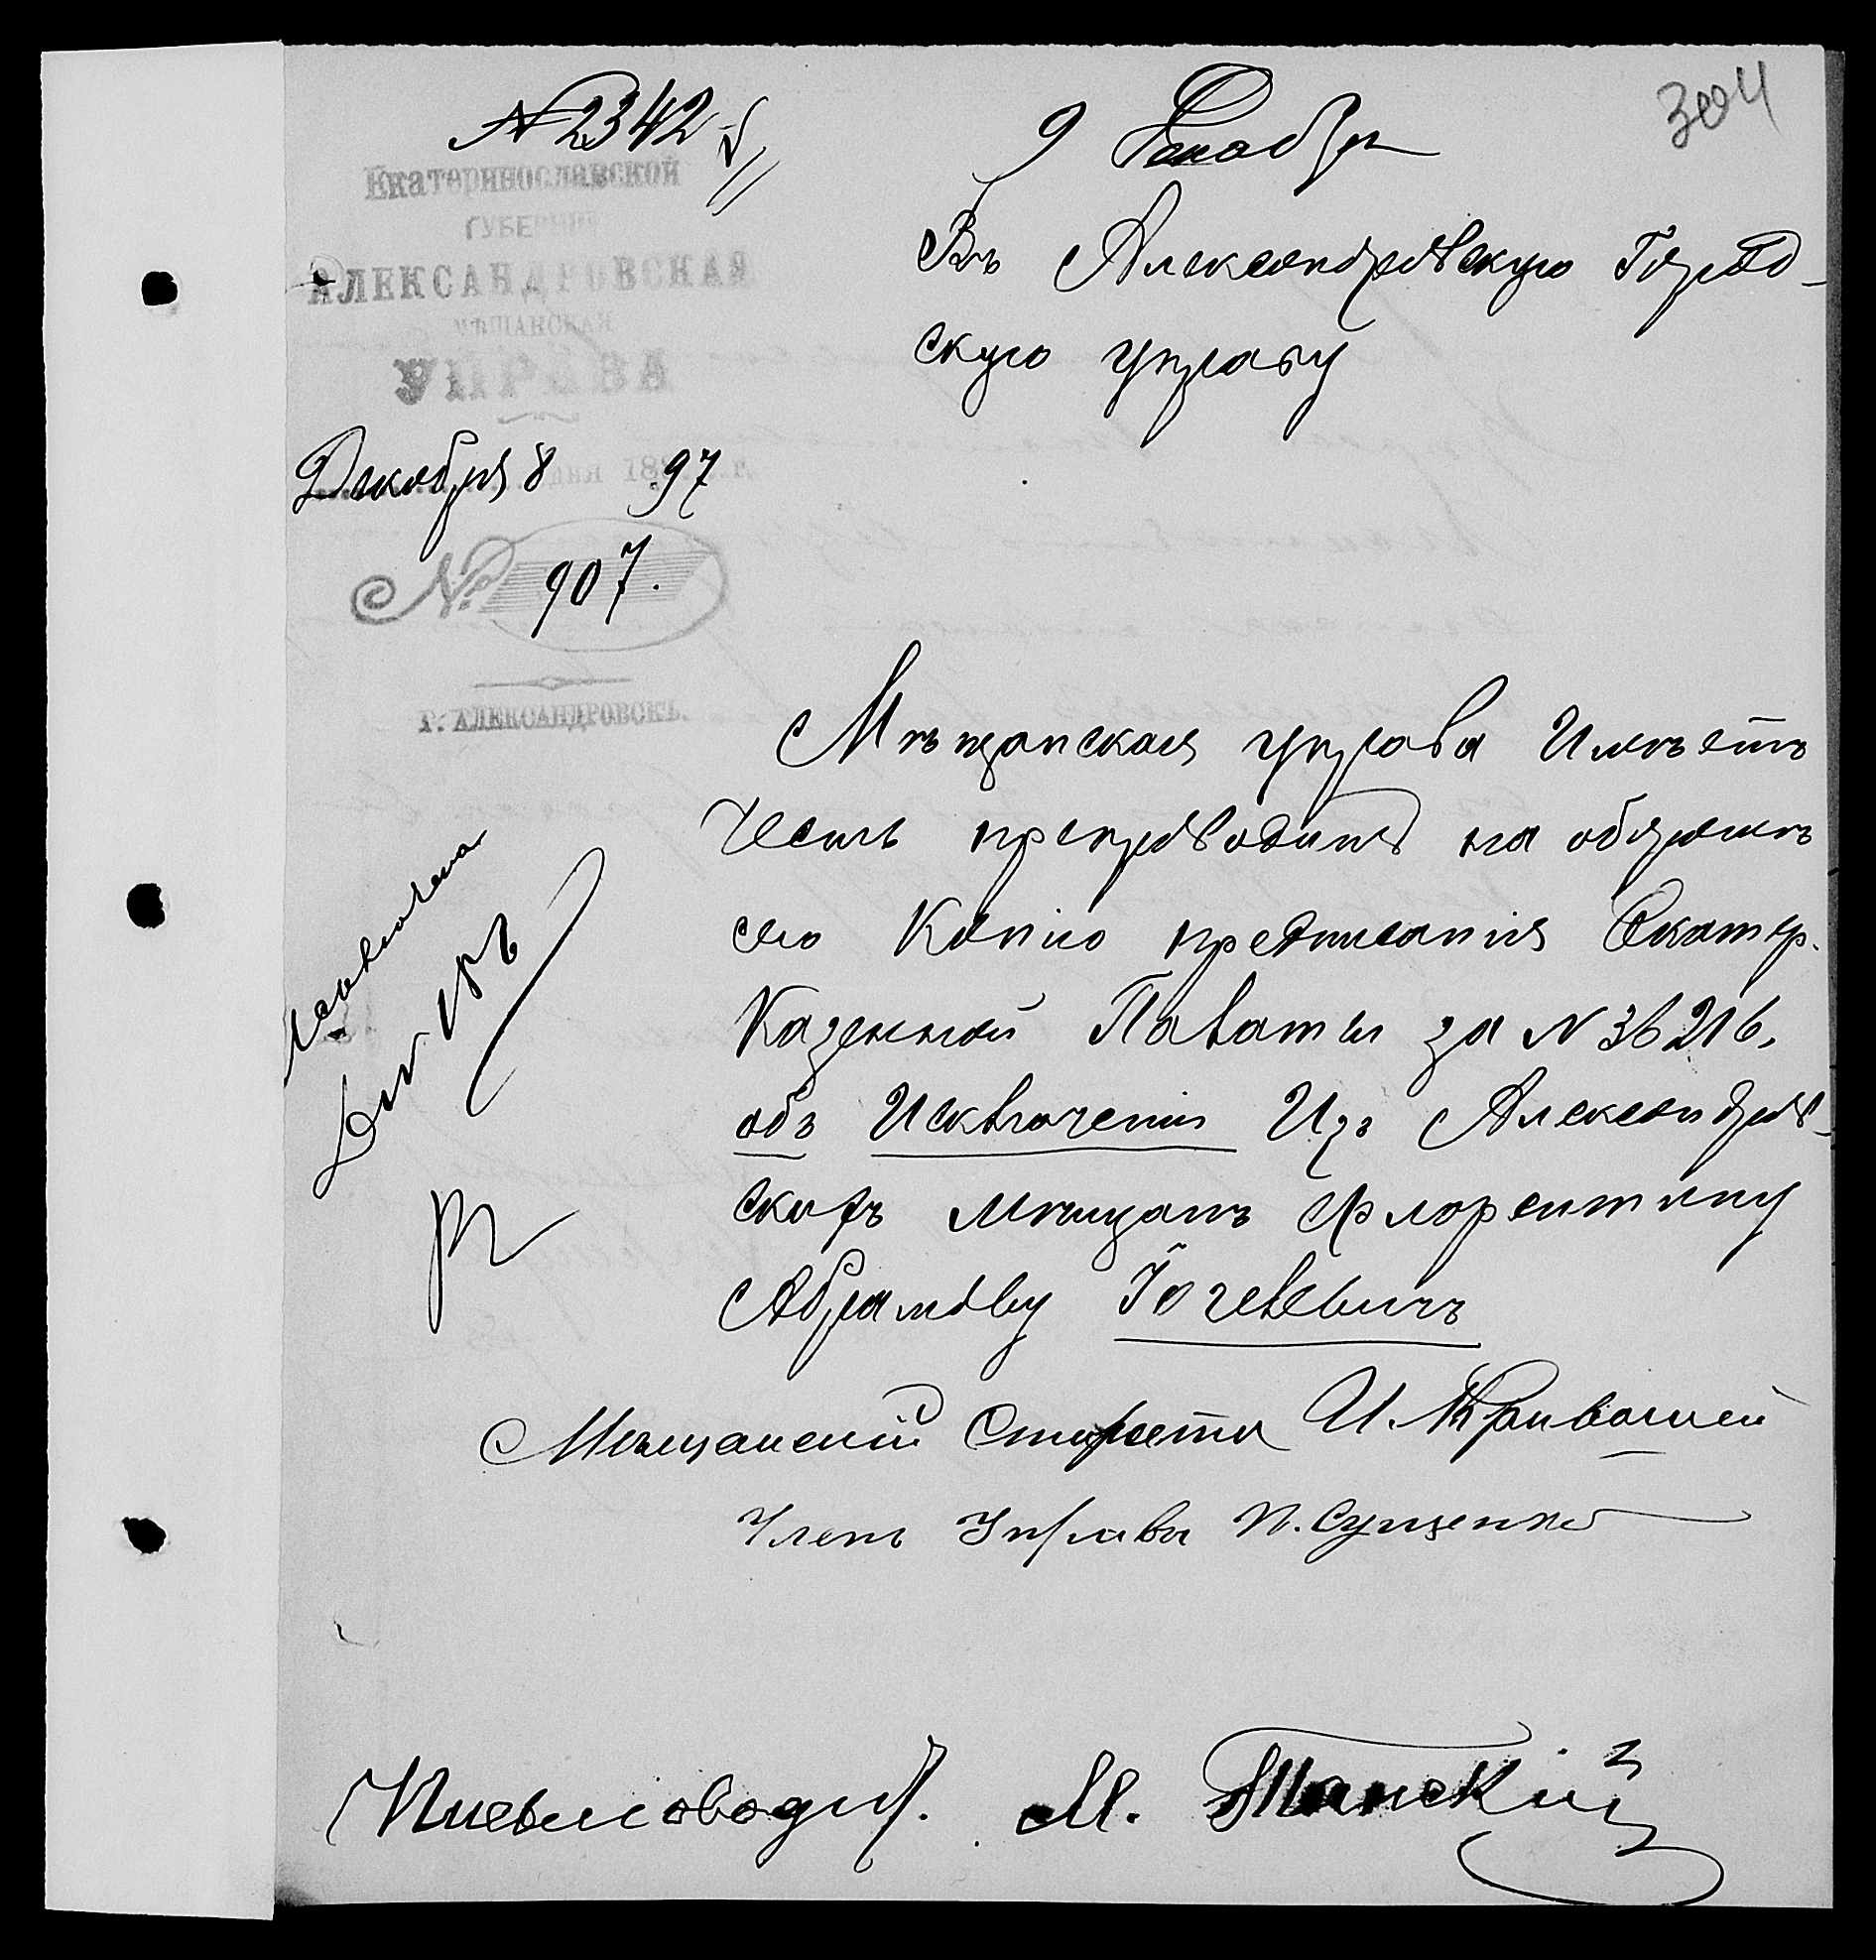 304
№ 2342
9 Декабр
Екатеринославской
ГУБЕРНІИ
АЛЕКСАНДРОВСКАЯ
МѢЩАНСКАЯ
УПРАВА
Декабря 8 дня 1897 г.
№ 907.
Г. АЛЕКСАНДРОВСКЪ.
Въ Александровскую Город-
скую управу
Мѣщанская управа Имѣетъ
Честь препроводить на обзрѣнъ
сею Копію предписанія Екатер.
Казенной Палаты за N 36216,
объ Исключеніи Изъ Александров-
скихъ мѣщанъ Флорентину
Абрамову Гогевичъ
Исключена
Мѣщанскій Староста И.
Членъ Управы П. Сущенко
Письмоводит. М. Танскій